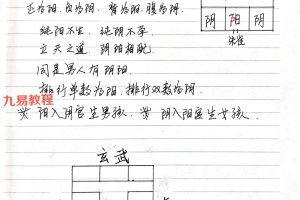 为阳,为阴,背为阳,腹为阴.
阴 阳 阴
朱雀
纯阳不生,纯阴不孕,
立天之道,阴阳相配
同是男人有阴阳
排行单数为阳,排行双数为阴.
※ 阳入阴宫生男孩, ※ 阴入阳宫生女孩.
九易教程
玄武